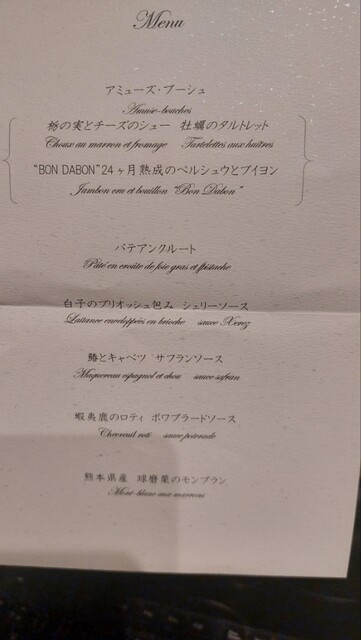 Menu
アミューズ・ブーシュ
Amuse-bouches
栃の実とチーズのシュー 牡蠣のタルトレット
Choux au marron et fromage Tartelettes aux huîtres
"BON DABON"24ヶ月熟成のペルシュウとブイヨン
Jambon cru et bouillon "Bon Dabon"
パテアンクルート
Pâté en croûte de foie gras et pistache
白子のブリオッシュ包み シェリーソース
Laitance enveloppées en brioche sauce Xerez
鰆とキャベツ サフランソース
Maquereau espagnol et chou sauce safran
蝦夷鹿のロティ ポワブラードソース
Chevreuil roti sauce poivrade
熊本県産 球磨栗のモンブラン
Mont-blanc aux marrons